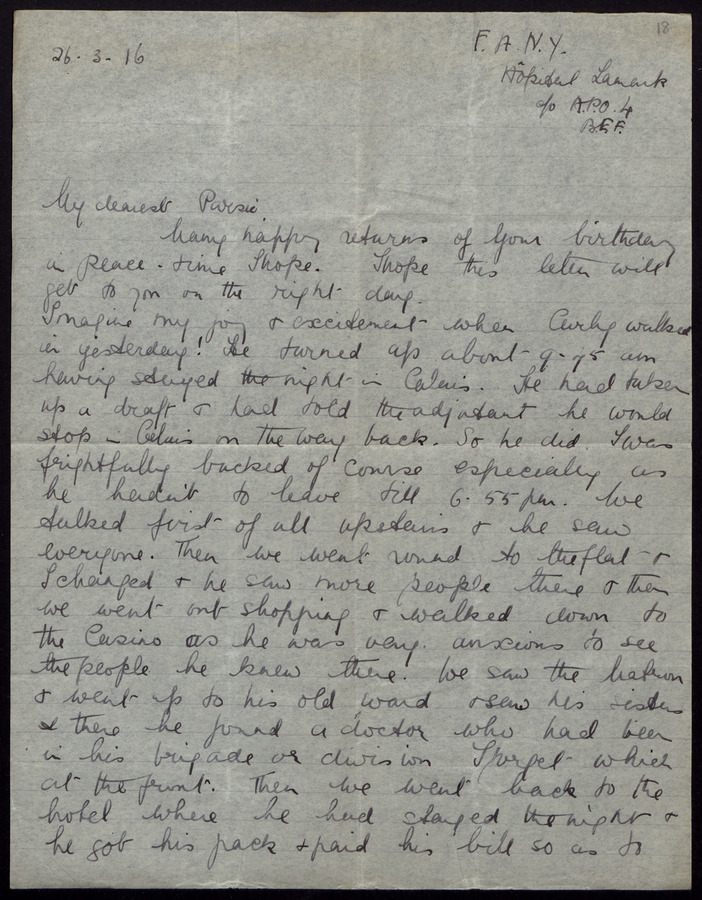 18
26-3-16
F.A.N.Y.
Hôpital Lamark
c/o A.P.O. 4
B.E.F.
My dearest
Many happy returns of your birthday
in peace-time I hope. I hope this letter will
get to you on the right day.
Imagine my joy & excitement when Curly walked
in yesterday! He turned up about 9-45 am
having stayed the night in Calais. He had taken
up a draft & had told the adjutant he would
stop in Calais on the way back. So he did. I was
frightfully bucked of course especially as
he hadn't to leave till 6.55 pm. We
talked first of all upstairs & he saw
everyone. Then we went round to the flat &
I changed & he saw more people there & then
we went out shopping & walked down to
the Casino as he was very anxious to see
the people he knew there. We saw the Matron
& went up to his old ward & saw his sisters
& there he found a doctor who had been
in his brigade or division I forget which
at the front. Then we went back to the
hotel where he had stayed the night &
he got his pack & paid his bill so as to